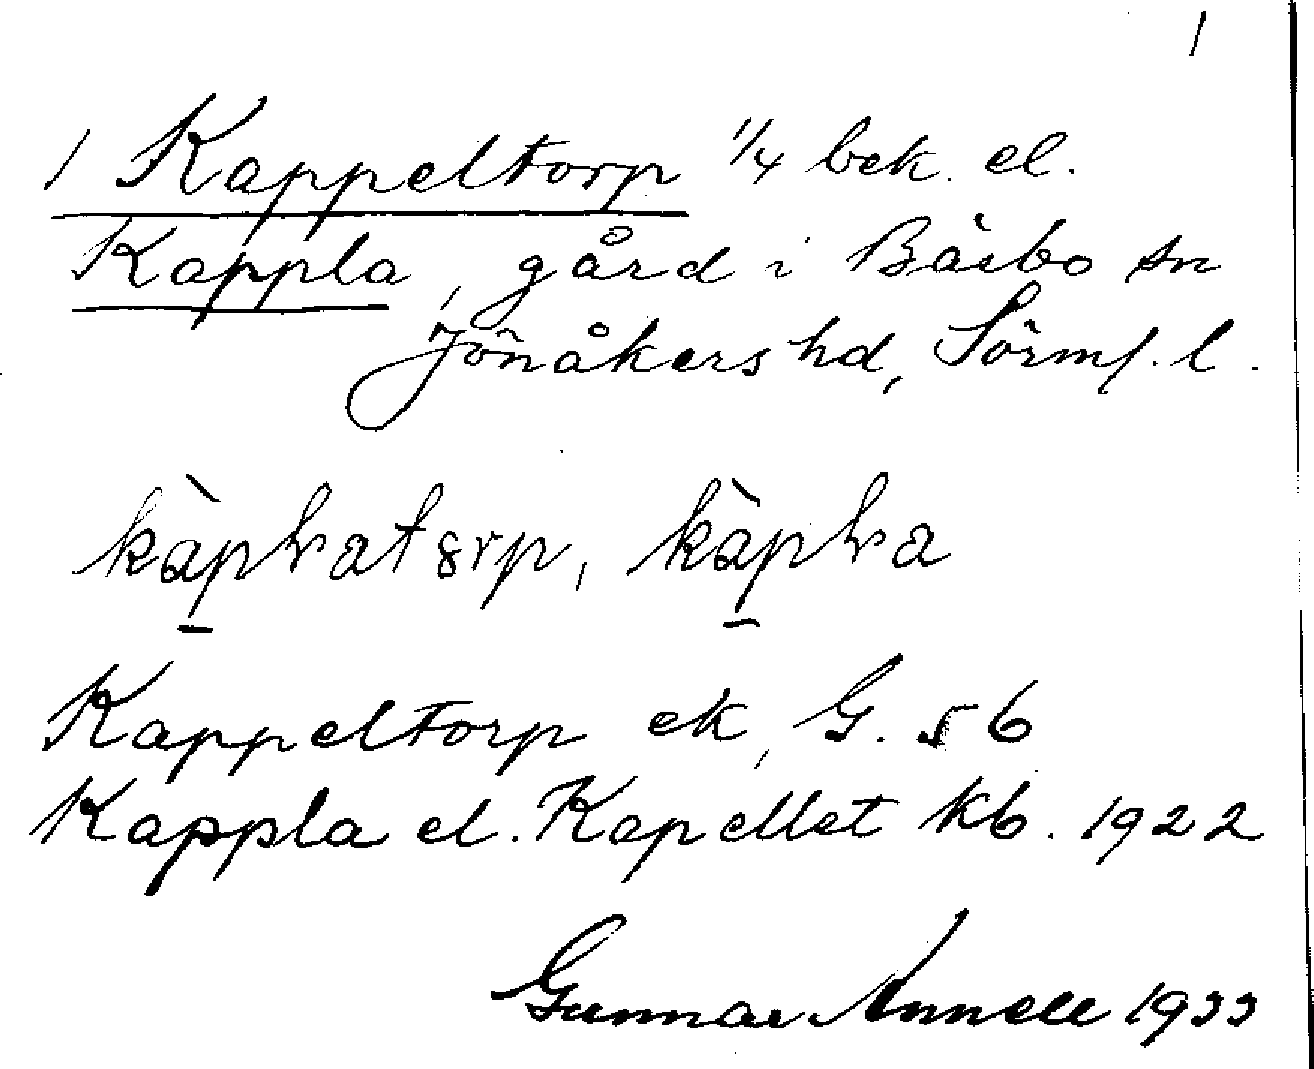 1
1 Kappeltorp 1/4 bek. el.
Kappla, gård i Bäsbo sn
Jönåkers hd, Sörml. l.
kàplatorp, kàpla
Kappeltorp ek, G. 56
Kappla el. Kapellet kb. 1922
Gunnar Annell 1933